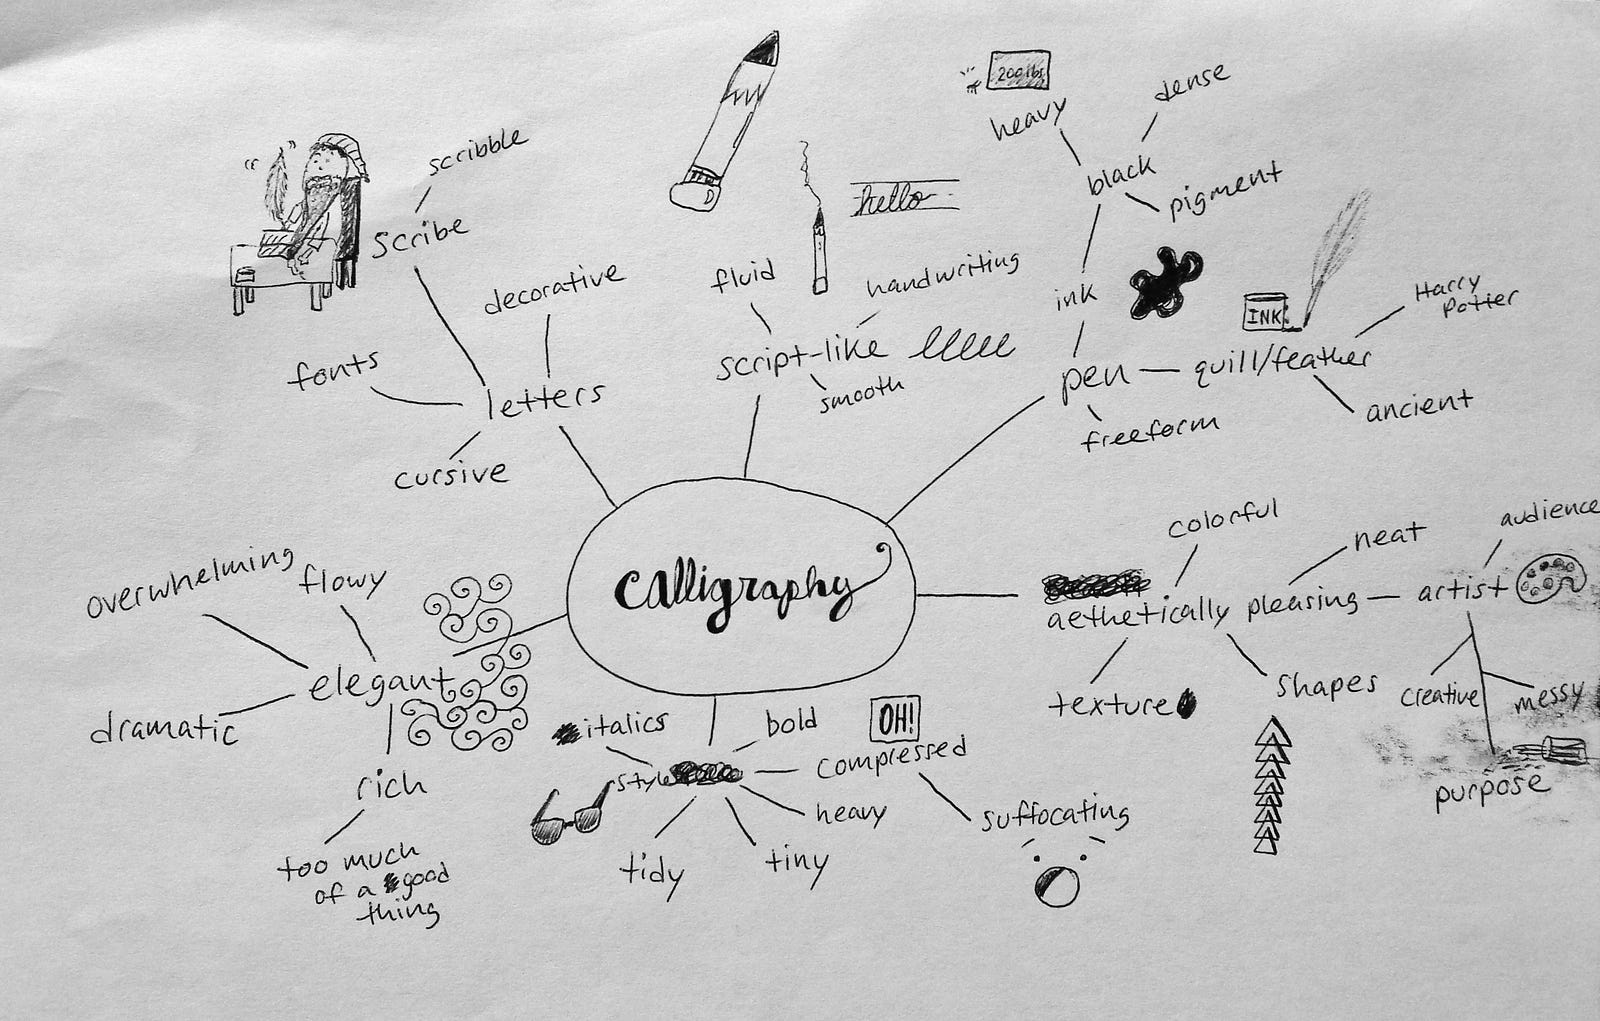 200 lbs
dense
heavy
scribble
black
pigment
hello
scribe
fluid
handwriting
decorative
ink
INK
Harry
Potter
script-like
fonts
smooth
pen
quill/feather
letters
ancient
freeform
cursive
colorful
audience
neat
overwhelming
flowy
calligraphy
artist
aethetically pleasing
elegant
shapes
creative
messy
texture
dramatic
italics
bold
OH!
compressed
style
rich
purpose
heavy
suffocating
too much
of a good
thing
tidy
tiny